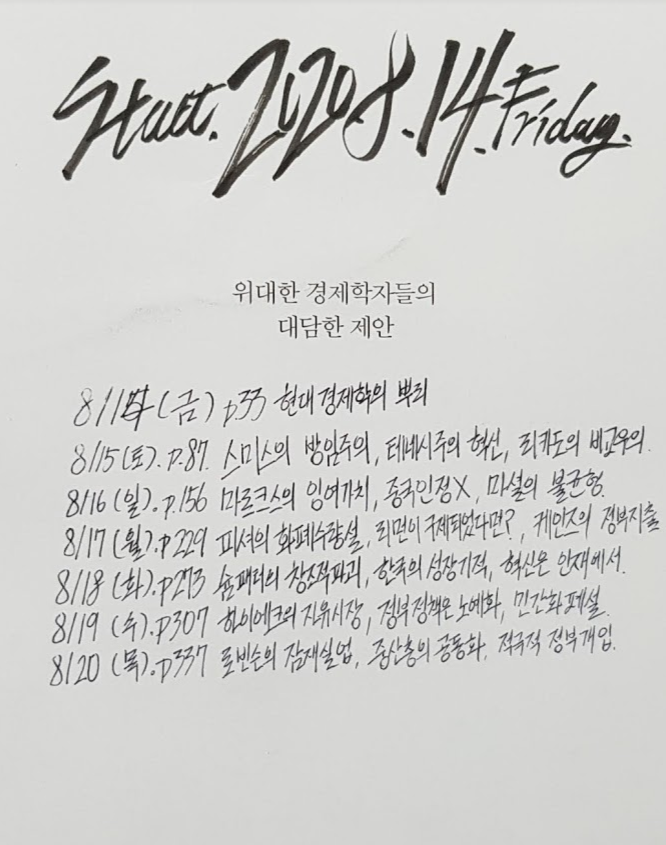 Start. 2020.8.14. Friday.
위대한 경제학자들의
대담한 제안
8/14 (금) p33 현대경제학의 뿌리
8/15(토). p.87. 스미스의 방임주의, 테네시주의 혁신, 리카도의 비교우위.
8/16 (일). p.156 마르크스의 잉여가치, 중국인정X, 마셜의 불균형.
8/17 (월). p229 피셔의 화폐수량설, 리먼이 구제되었다면?, 케인즈의 정부지출
8/18 (화). p273 슘페터의 창조적파괴, 한국의 성장기적, 혁신은 인재에서.
8/19 (수). p307 하이에크의 자유시장, 정부정책은 노예화, 민간화폐설.
8/20 (목). p337 로빈슨의 잠재실업, 중산층의 공동화, 적극적 정부개입.